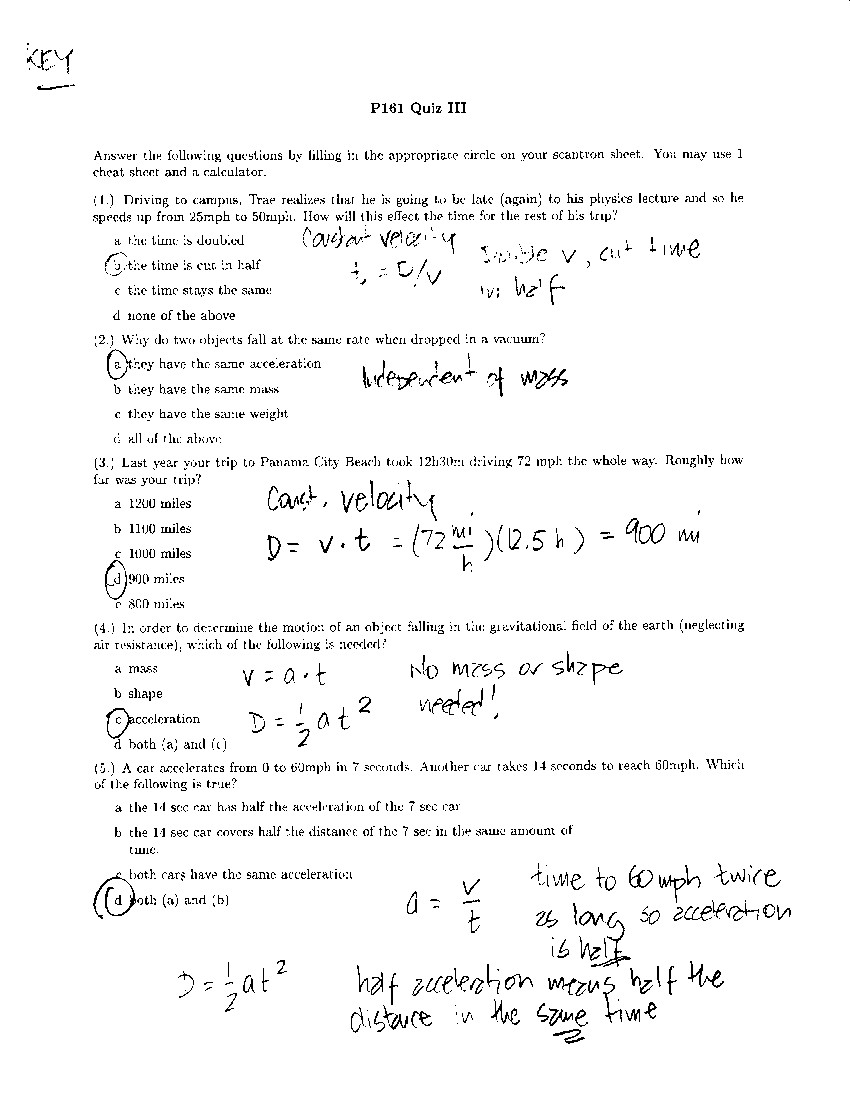 KEY
P161 Quiz III
Answer the following questions by filling in the appropriate circle on your scantron sheet. You may use 1
cheat sheet and a calculator.
(1.) Driving to campus, Trae realizes that he is going to be late (again) to his physics lecture and so he
speeds up from 25mph to 50mph. How will this effect the time for the rest of his trip?
a the time is doubled
b the time is cut in half
c the time stays the same
d none of the above
Constant velocity
t = D/v
Double v, cut time
in half
(2.) Why do two objects fall at the same rate when dropped in a vacuum?
a they have the same acceleration
b they have the same mass
c they have the same weight
d all of the above
Independent of mass
(3.) Last year your trip to Panama City Beach took 12h30m driving 72 mph the whole way. Roughly how
far was your trip?
a 1200 miles
b 1100 miles
c 1000 miles
d 900 miles
e 800 miles
Const. velocity
D = v · t = (72 mi/h)(12.5 h) = 900 mi
(4.) In order to determine the motion of an object falling in the gravitational field of the earth (neglecting
air resistance), which of the following is needed?
a mass
b shape
c acceleration
d both (a) and (c)
v = a · t
D = 1/2 a t²
No mass or shape
needed!
(5.) A car accelerates from 0 to 60mph in 7 seconds. Another car takes 14 seconds to reach 60mph. Which
of the following is true?
a the 14 sec car has half the acceleration of the 7 sec car
b the 14 sec car covers half the distance of the 7 sec in the same amount of
time.
c both cars have the same acceleration
d both (a) and (b)
a = v/t
time to 60 mph twice
as long so acceleration
is half
D = 1/2 a t²
half acceleration means half the
distance in the same time